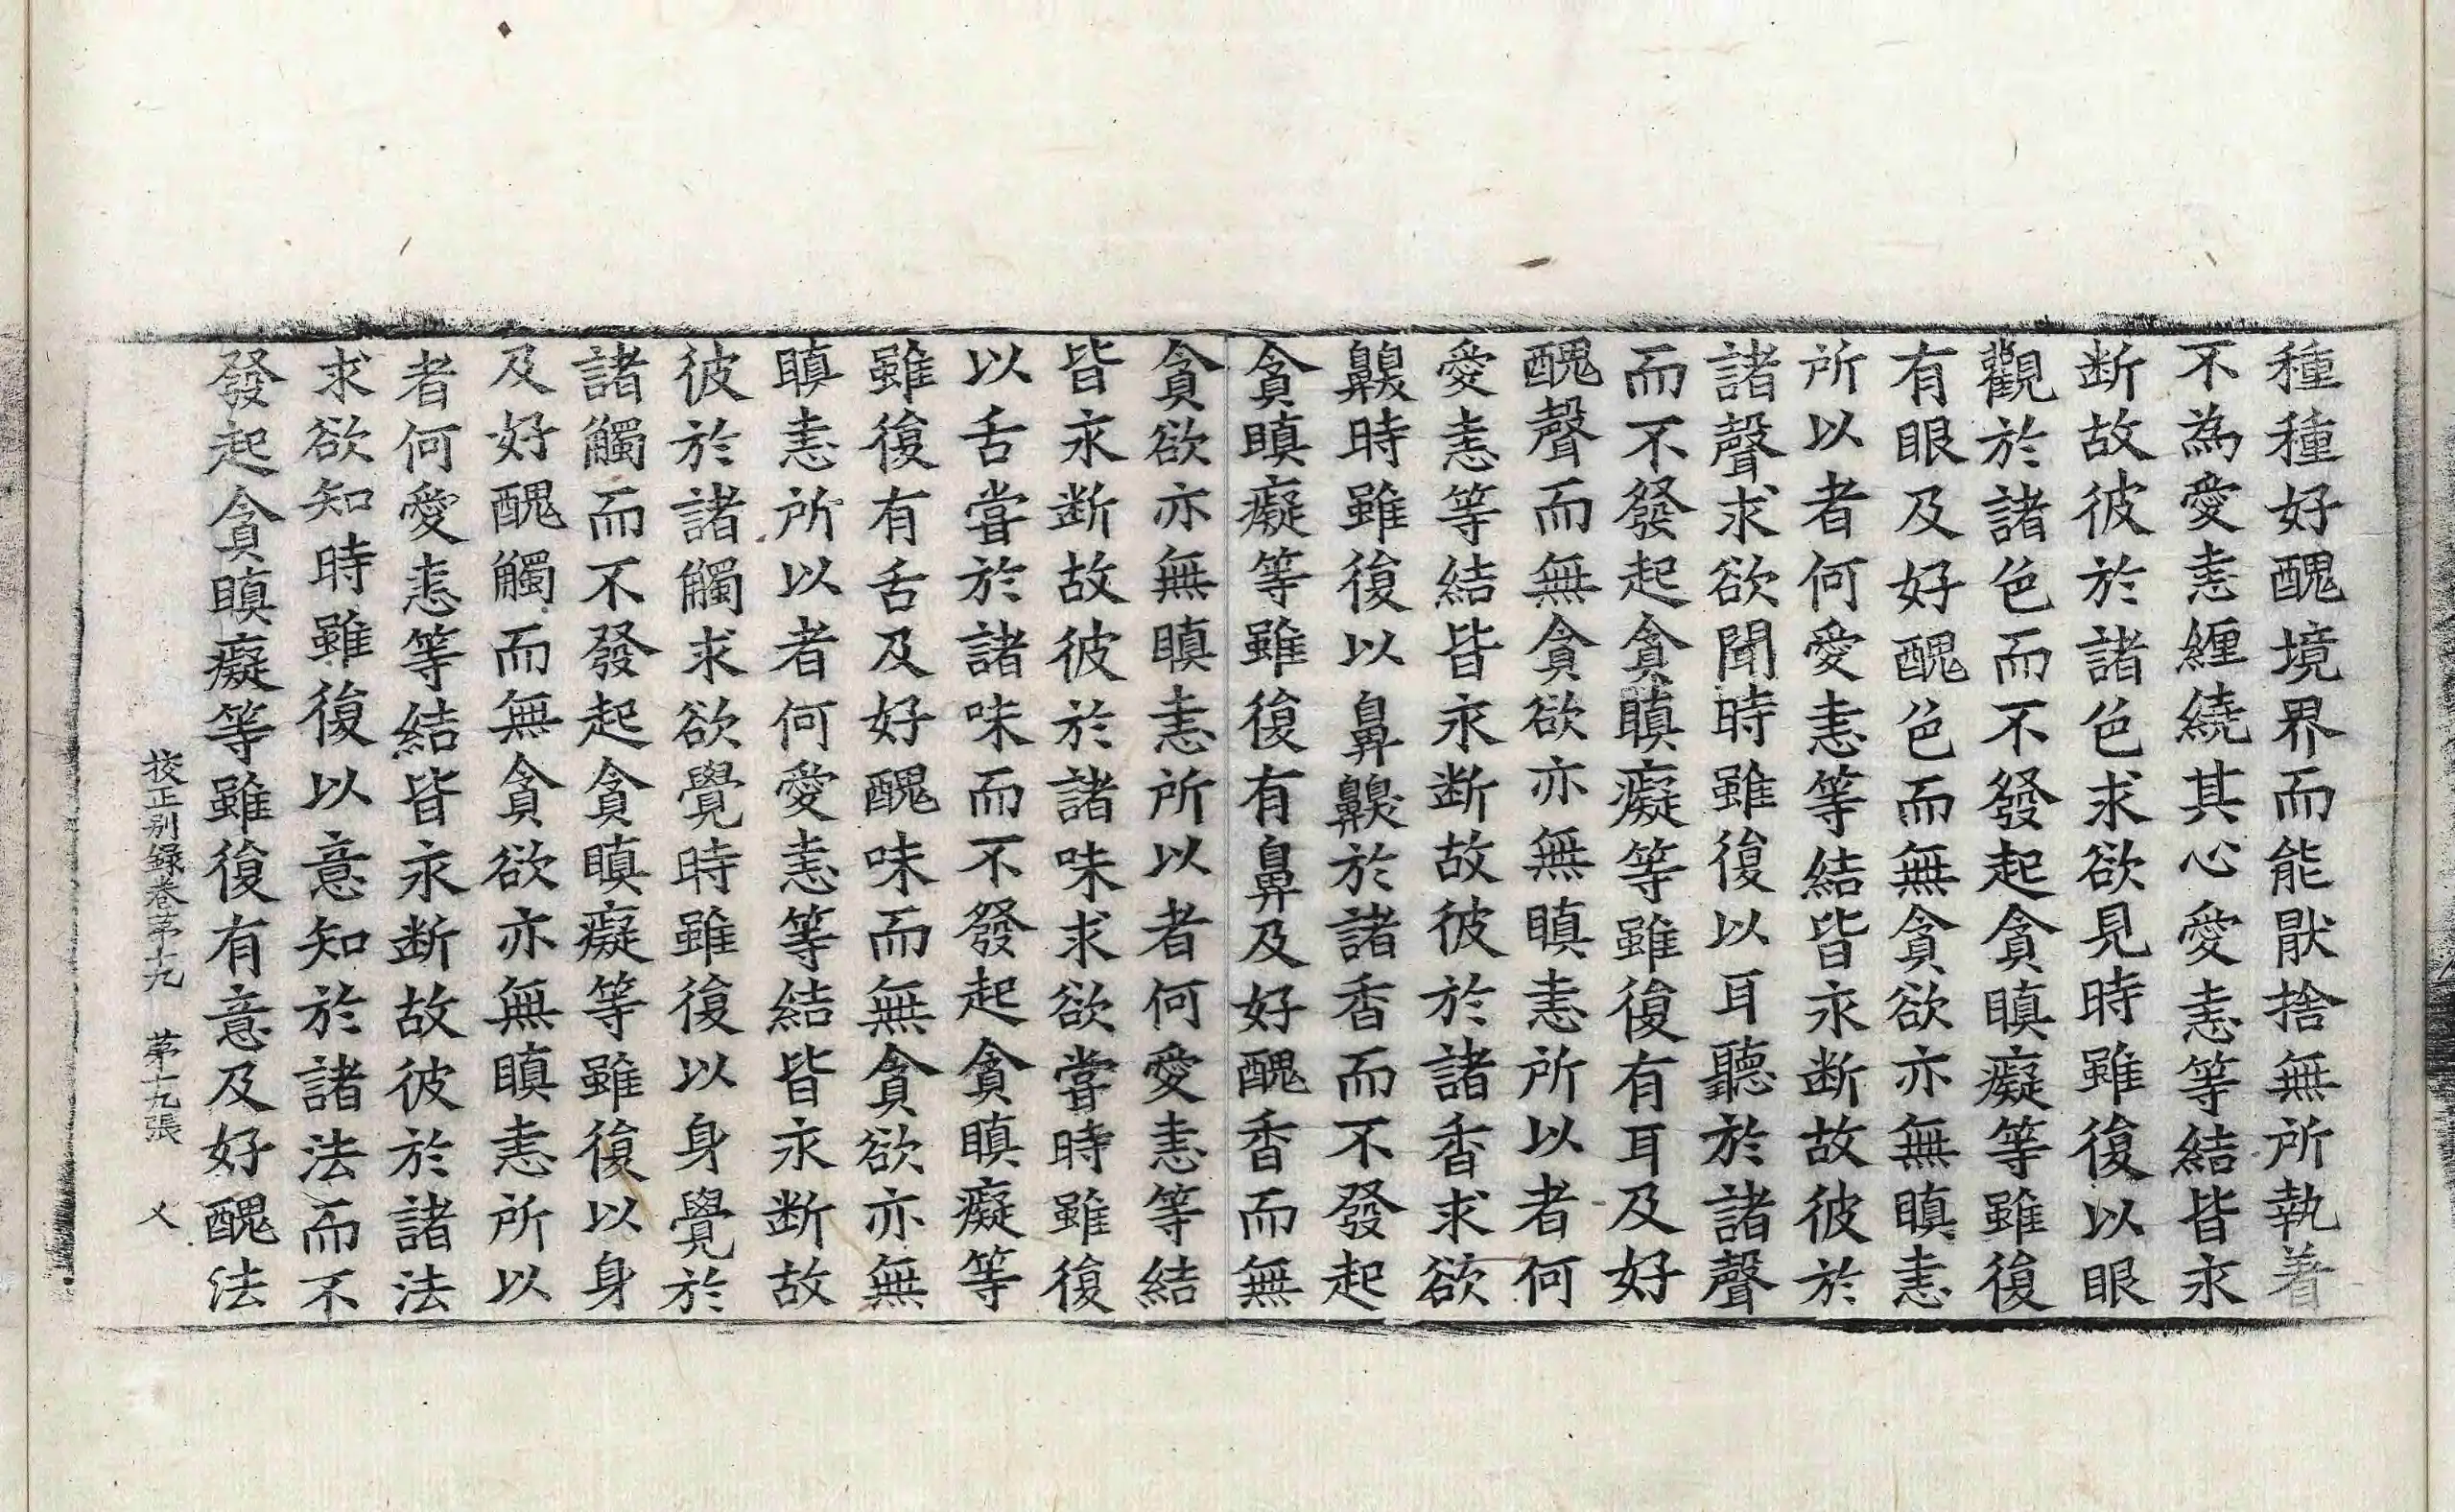 種種好醜境界而能猒捨無所執着
不為愛恚纏繞其心愛恚等結皆永
断故彼於諸色求欲見時雖復以眼
觀於諸色而不發起貪瞋癡等雖復
有眼及好醜色而無貪欲亦無瞋恚
所以者何愛恚等結皆永断故彼於
諸聲求欲聞時雖復以耳聽於諸聲
而不發起貪瞋癡等雖復有耳及好
醜聲而無貪欲亦無瞋恚所以者何
愛恚等結皆永断故彼於諸香求欲
齅時雖復以鼻齅於諸香而不發起
貪瞋癡等雖復有鼻及好醜香而無
貪欲亦無瞋恚所以者何愛恚等結
皆永断故彼於諸味求欲甞時雖復
以舌甞於諸味而不發起貪瞋癡等
雖復有舌及好醜味而無貪欲亦無
瞋恚所以者何愛恚等結皆永断故
彼於諸觸求欲覺時雖復以身覺於
諸觸而不發起貪瞋癡等雖復以身
及好醜觸而無貪欲亦無瞋恚所以
者何愛恚等結皆永断故彼於諸法
求欲知時雖復以意知於諸法而不
發起貪瞋癡等雖復有意及好醜法
校正别録卷苐十九 苐十九張 乂